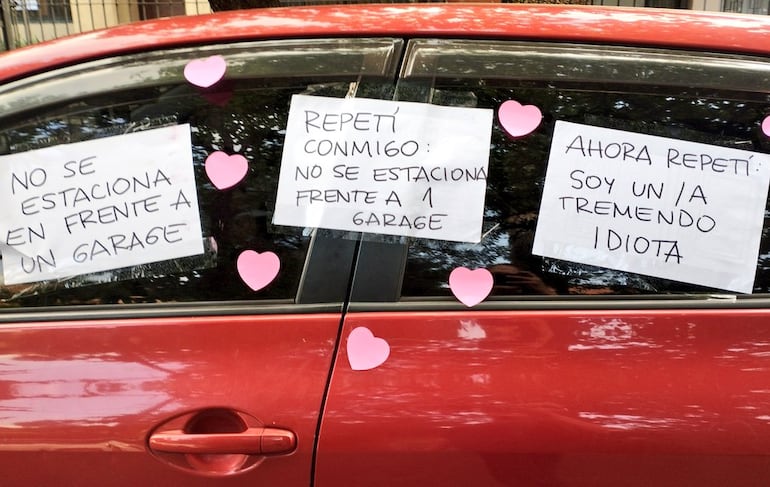 NO SE
ESTACIONA
EN FRENTE A
UN GARAGE
REPETÍ
CONMIGO:
NO SE ESTACIONA
FRENTE A 1
GARAGE
AHORA REPETÍ:
SOY UN/A
TREMENDO
IDIOTA